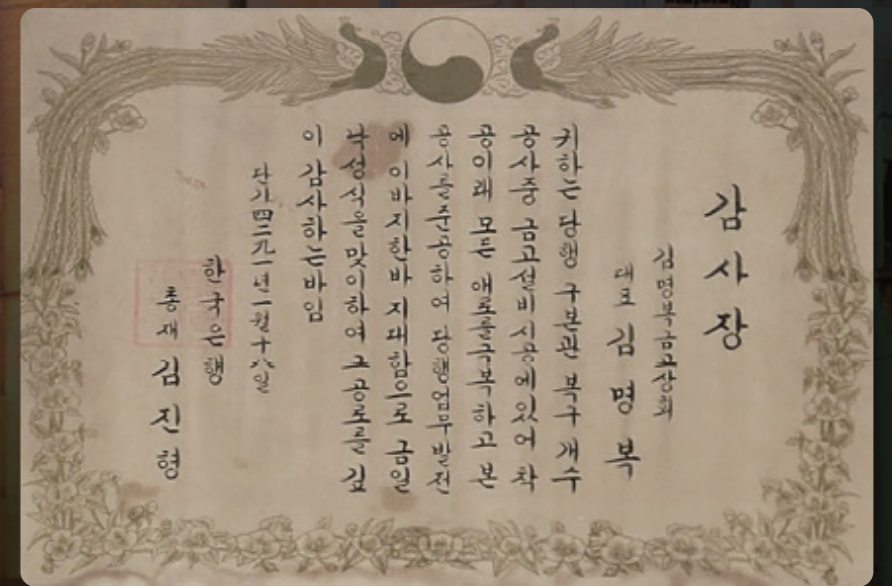 감사장
김명복금고상회
대표 김명복
귀하는 당행 구본관 복구 개수
공사중 금고설비 시공에있어 착
공이래 모든 애로를극복하고 본
공사를준공하여 당행업무발전
에 이바지한바 지대함으로 금일
낙성식을 맞이하여 그 공로를 깊
이 감사하는바임
단기四二九一년一월十八일
한국은행
총재 김진형